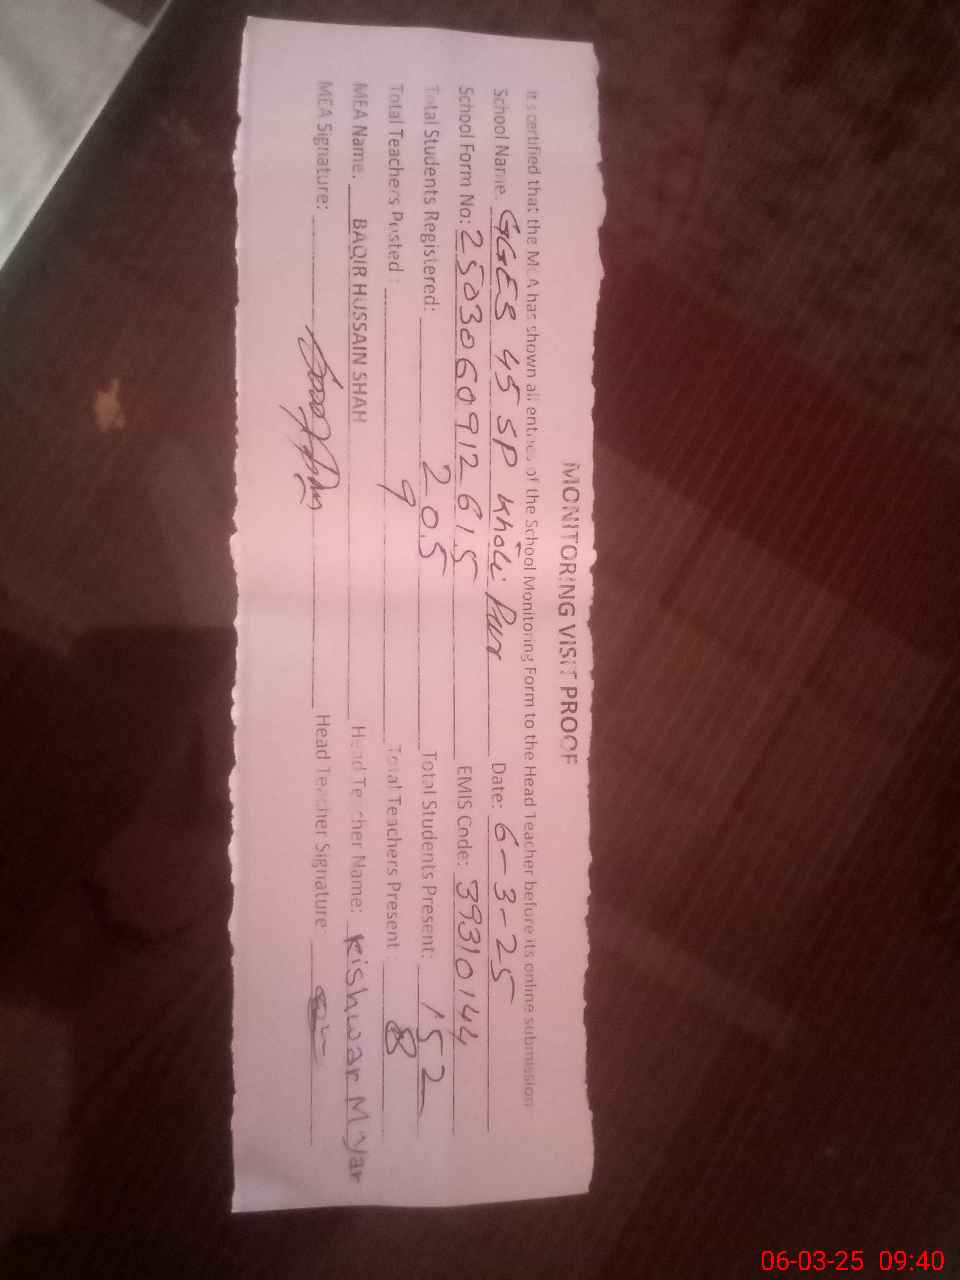 MONITORING VISIT PROOF
It s certified that the MEA has shown all entries of the School Monitoring Form to the Head Teacher before its online submission
School Name. GGES 45 SP Kholi Pur Date: 6-3-25
School Form No: 2503060912615 EMIS Code: 39310144
Total Students Registered: 205 Total Students Present: 152
Total Teachers Posted : 9 Total Teachers Present : 8
MEA Name: BAQIR HUSSAIN SHAH Head Teacher Name: Kishwar
MEA Signature: Head Teacher Signature
06-03-25 09:40